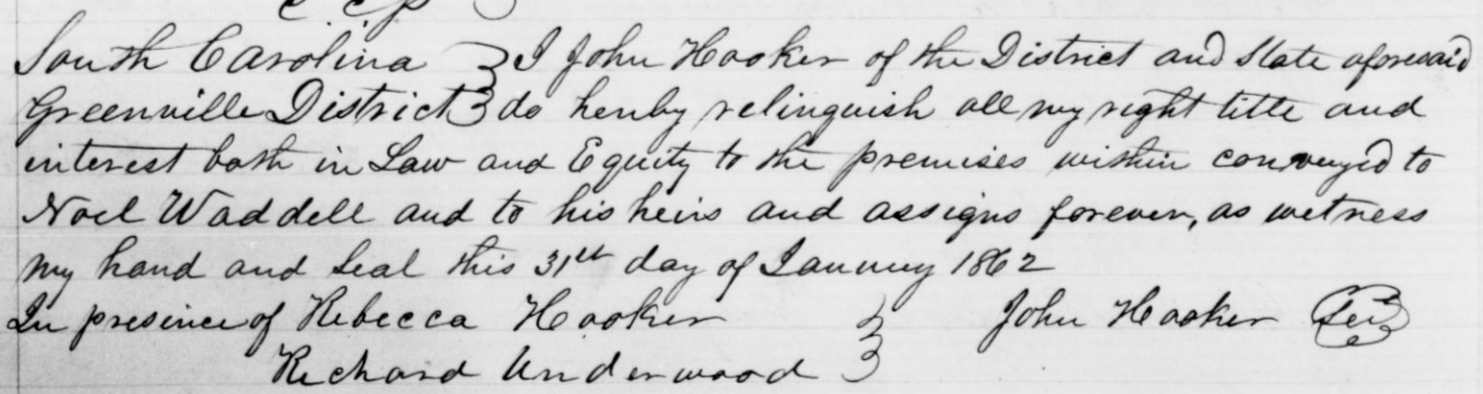 South Carolina } I John Hooker of the District and State aforesaid
Greenville District } do hereby relinquish all my right title and
interest both in Law and Equity to the premises within conveyed to
Noel Waddell and to his heirs and assigns forever, as witness
my hand and Seal this 31st day of January 1862
In presence of Rebecca Hooker } John Hooker
Richard Underwood }